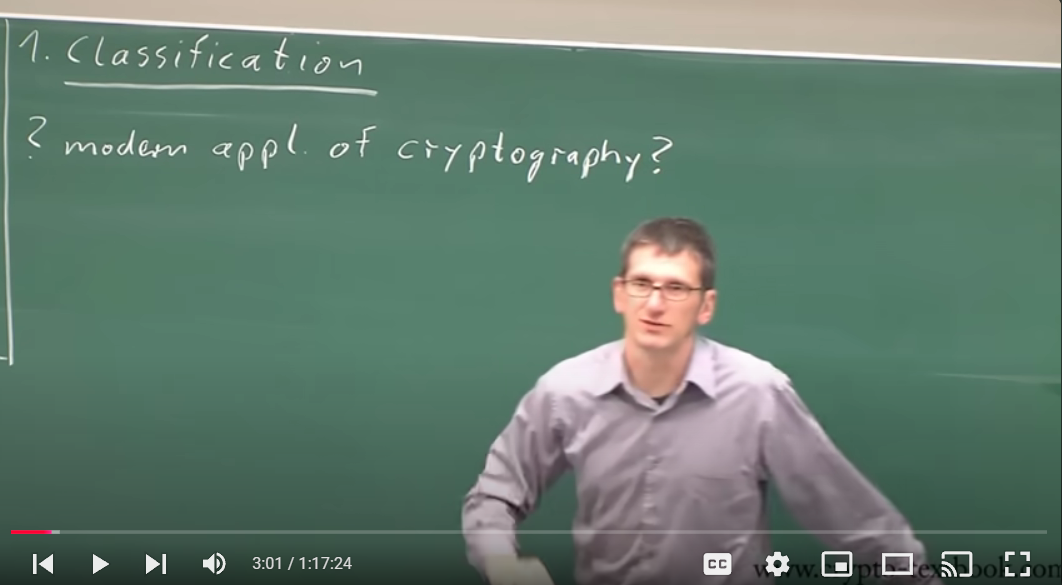 1. Classification
? modern appl. of cryptography?
3:01 / 1:17:24
CC
www.crypto-textbook.com